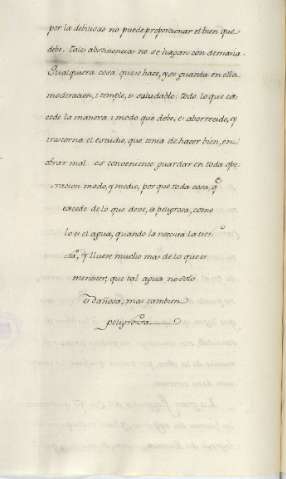 por la dehucas no puede proporcionar el bien que
debe. Tales abstinencias no se hagan con demasia.
Qualquiera cosa, que se hace, y se guarda en ella
moderacion, i temple, es saludable; todo lo que ex-
cede la manera i modo que debe, es aborrecido, y
trastorna el estudio, que tenia de hacer bien, en
obrar mal. es conveniente guardar en toda ope-
racion modo, y medio, por que toda cosa, q.e
excede de lo que deve, es peligrosa, como
lo es el agua, quando la necesita la tier-
ra, y llueve mucho mas de lo que es
menester, que tal agua no solo
es dañosa, mas tambien
peligrosa